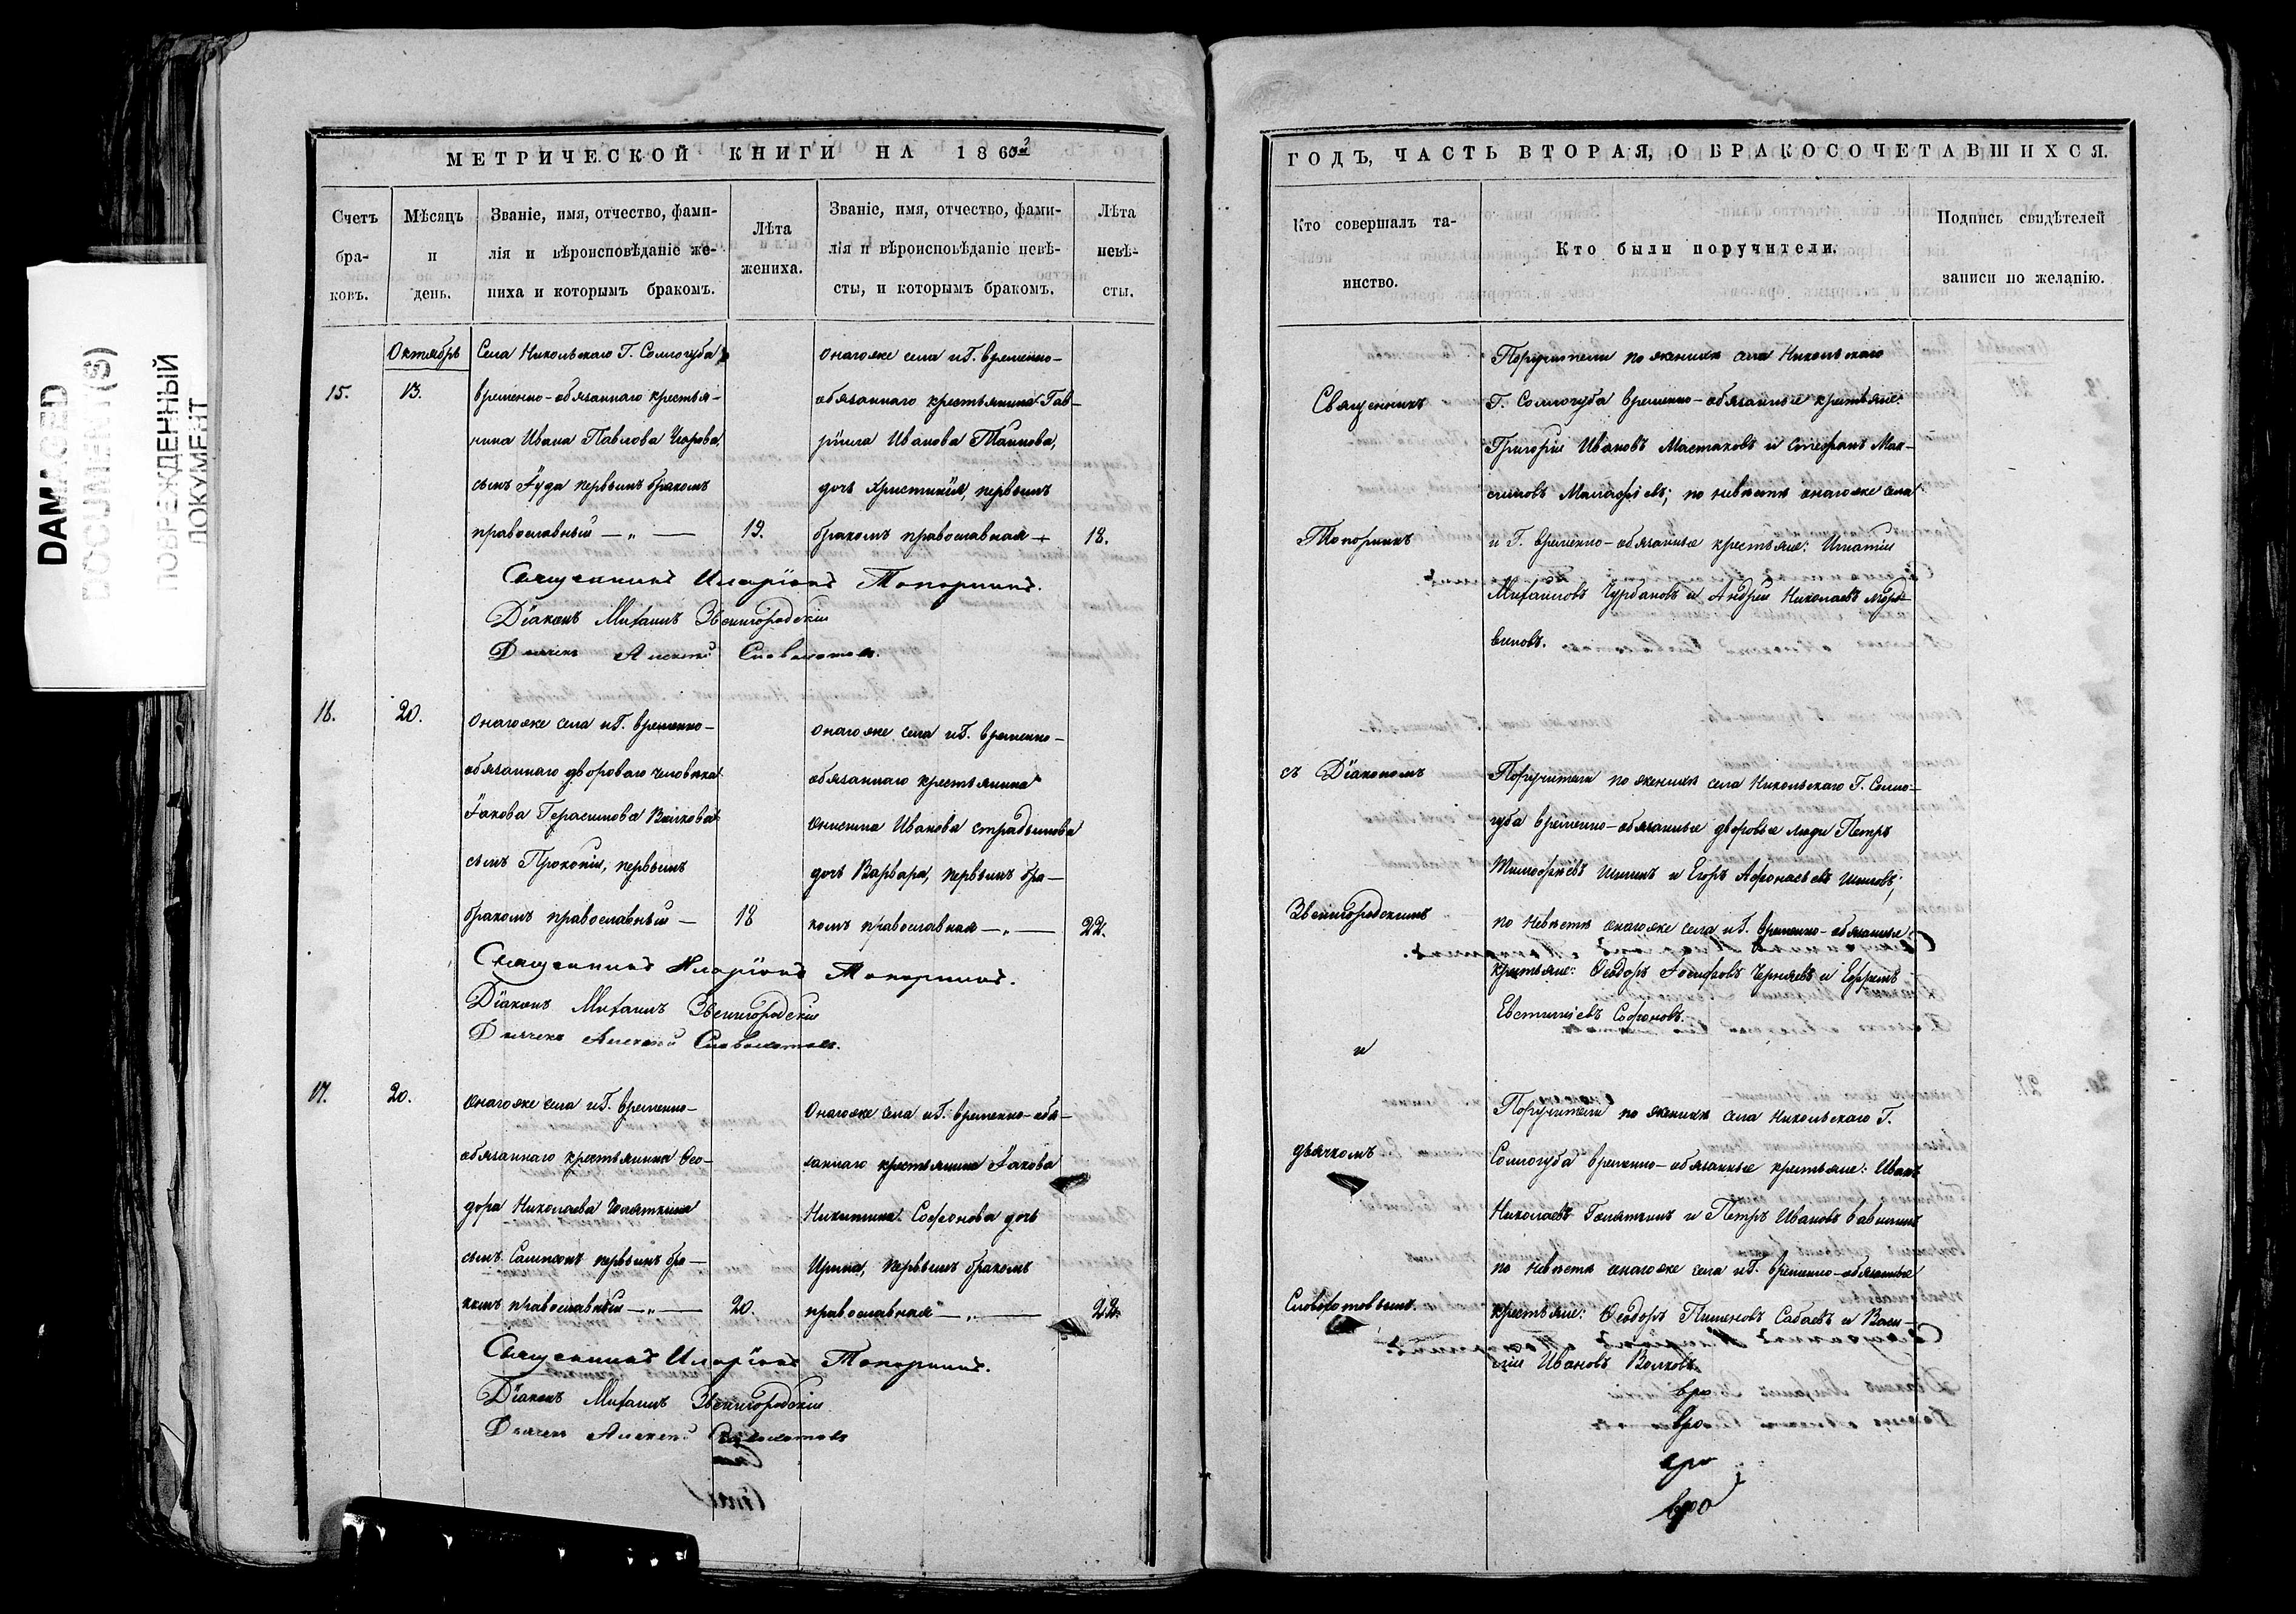 DAMAGED
DOCUMENT(S)
ПОВРЕЖДЕННЫЙ
ДОКУМЕНТ
МЕТРИЧЕСКОЙ КНИГИ НА 186
Счетъ браковъ.
Мѣсяцъ и день.
Званіе, имя, отчество, фамилія и вѣроисповѣданіе жениха и которымъ бракомъ.
Лѣта жениха.
Званіе, имя, отчество, фамилія и вѣроисповѣданіе невѣсты, и которымъ бракомъ.
Лѣта невѣсты.
15.
Октябрь
13.
Села Никольскаго Г. Сологуба
временно-обязаннаго крестья-
нина Ивана Павлова
сынъ Іуда первымъ бракомъ
православный — „ —
19.
онагоже села и Г. временно-
обязаннаго крестьянина Гав-
ріила Иванова
дочь Христинія, первымъ
бракомъ православная —
18.
Священникъ Иларіонъ Топорнинъ.
Діаконъ Михаилъ Звенигородскій
Дьячекъ Алексѣй
16.
20.
онагоже села и Г. временно-
обязаннаго двороваго человѣка
Іакова Герасимова Волкова
сынъ Прокопій, первымъ
бракомъ православный —
18
онагоже села и Г. временно-
обязаннаго крестьянина
Онисима Иванова
дочь Варвара, первымъ бра-
комъ православная — „ —
22.
Священникъ Иларіонъ Топорнинъ.
Діаконъ Михаилъ Звенигородскій
Дьячекъ Алексѣй
17.
20.
онагоже села и Г. временно-
обязаннаго крестьянина Ѳео-
дора Николаева Голяткина
сынъ Сампсонъ первымъ бра-
комъ православный — „ —
20.
Онагоже села и Г. временно-обя-
заннаго крестьянина Іакова
Никитина Софонова дочь
Ирина, первымъ бракомъ
православная — „ —
22.
Священникъ Иларіонъ Топорнинъ.
Діаконъ Михаилъ Звенигородскій
Дьячекъ Алексѣй
ГОДЪ, ЧАСТЬ ВТОРАЯ, О БРАКОСОЧЕТАВШИХСЯ.
Кто совершалъ таинство.
Кто были поручители.
Подпись свидѣтелей записи по желанію.
Священникъ
Топорнинъ
съ Діакономъ
Звенигородскимъ
и
дьячкомъ
Поручители по женихѣ села Никольскаго
Г. Сологуба временно-обязанные крестьяне:
Григорій Ивановъ Мастаковъ и Стефанъ Мак-
симовъ; по невѣстѣ онагоже села
и Г. временно-обязанные крестьяне: Игнатій
Михайловъ Чурбановъ и Андрей Николаевъ Морд-
виновъ.
Поручители по женихѣ села Никольскаго Г. Соло-
губа временно-обязанные дворовые люди Петръ
Тимофѣевъ и Егоръ Афонасьевъ
по невѣстѣ онагоже села и Г. временно-обязанные
крестьяне: Ѳеодоръ Іосифовъ Черняевъ и Ефремъ
Евстигнѣевъ Софоновъ.
Поручители по женихѣ села Никольскаго Г.
Сологуба временно-обязанные крестьяне: Иванъ
Николаевъ Голяткинъ и Петръ Ивановъ
по невѣстѣ онагоже села и Г. временно-обязанные
крестьяне: Ѳеодоръ Пименовъ Сабаевъ и Васи-
лій Ивановъ Волковъ.